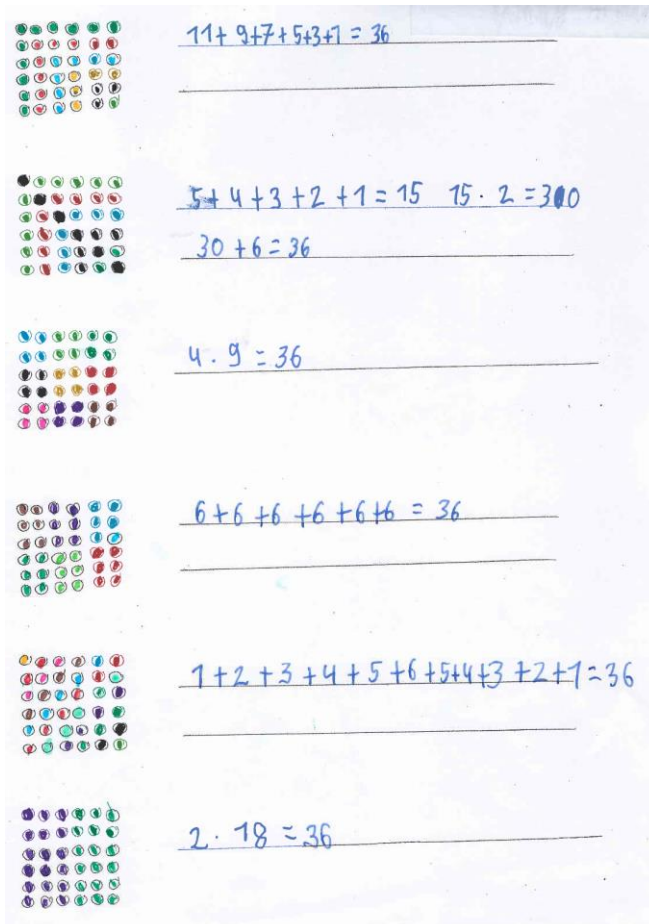 11+ 9+7+5+3+1 = 36
5+ 4+3+2+1=15 15·2=30
30+6=36
4·9=36
6+6+6+6+6+6 = 36
1+2+3+4+5+6+5+4+3+2+1=36
2·18=36